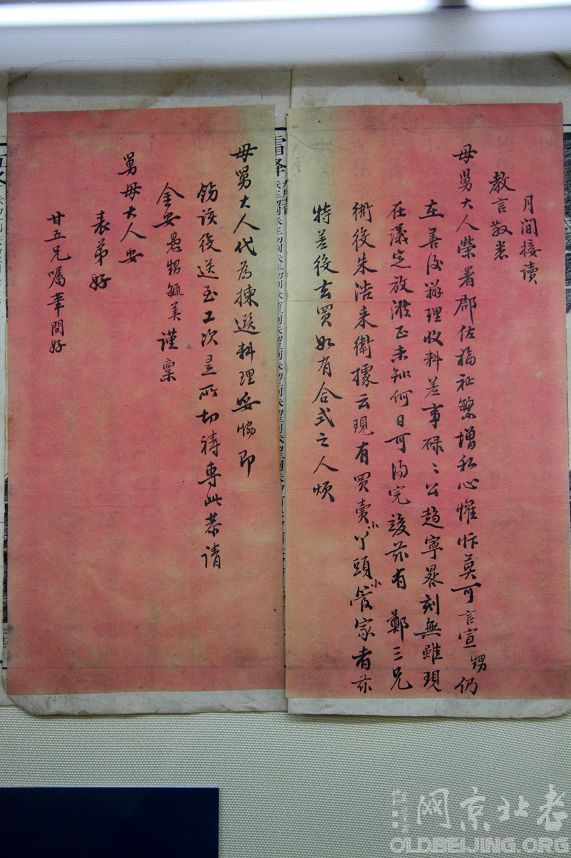 月間接讀
教言敬悉
母舅大人榮署郡佐福祉繁增私心慛忭莫可言宣甥仍
在善後辦理收料差事碌碌公趨寧晷刻無雖現
在議定放淤正未知何日可得完竣茲有 鄭三兄
衙役朱浩来衛據云現有買賣小丫頭小管家者茲
特差後去買如有合式之人煩
母舅大人代為揀選料理妥協即
飭該後送至工次是所切禱專此恭請
金安愚甥毓美謹稟
舅母大人安
表弟好
廿五兄囑筆問好
老北京网
OLDBEIJING.ORG